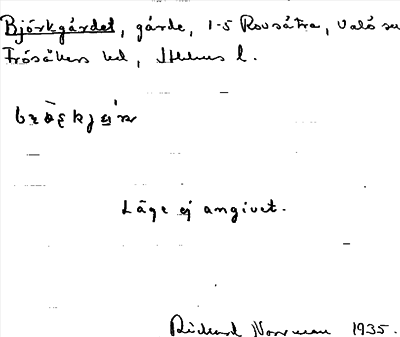 Björkgärdet, gärde, 1-5 Rovsätra, Valö sn
Frösåkers hd, Sthlms l.
Läge ej angivet.
Rickard Norrman 1935.